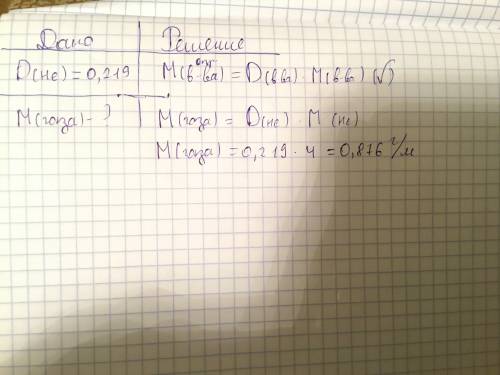 Дано Решение
D(не) = 0,219 М(в-ва) = D(в ва) · М(в ва) (√)
М(газа) - ? М(газа) = D(не) · М (не)
М(газа) = 0,219 · 4 = 0,876 г/м